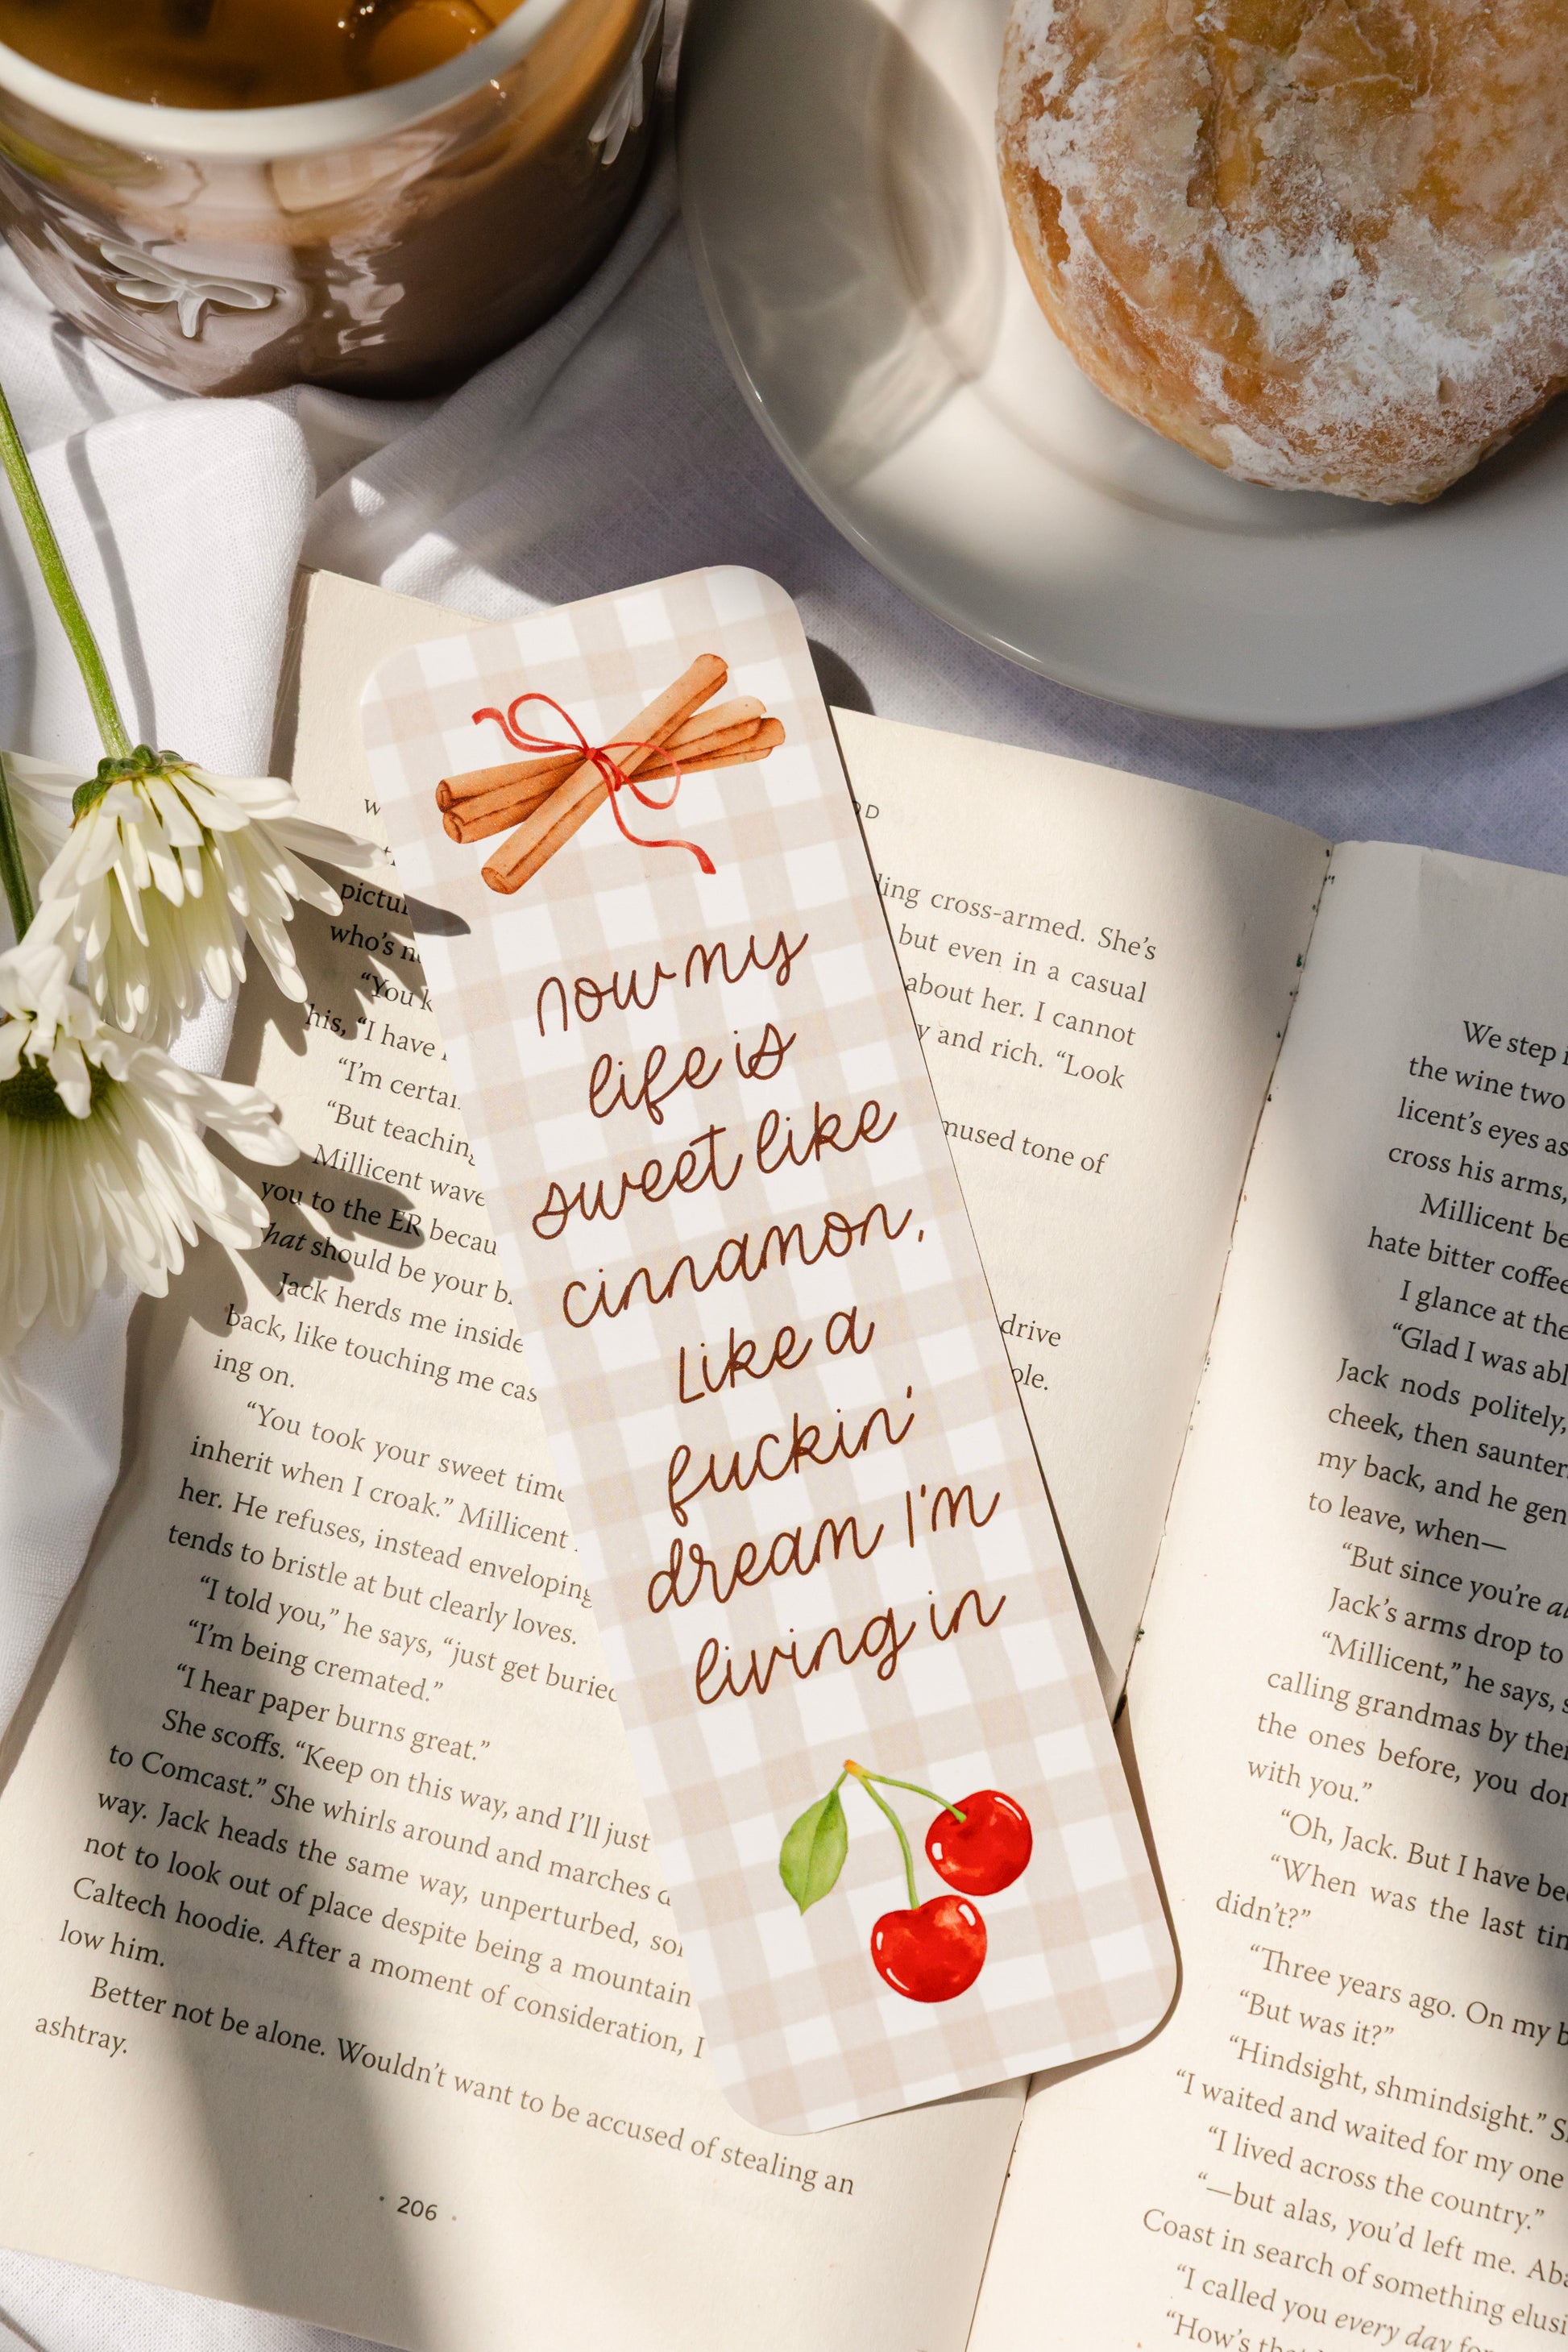 now my
life is
sweet like
cinnamon,
Like a
fuckin'
dream I'm
living in
picture
who's n
"You k
his, "I have
"I'm certai
"But teaching
Millicent wave
you to the ER becau
that should be your b
Jack herds me inside
back, like touching me cas
ing on.
"You took your sweet time
inherit when I croak." Millicent
her. He refuses, instead enveloping
tends to bristle at but clearly loves.
"I told you," he says, "just get buried
"I'm being cremated."
"I hear paper burns great."
She scoffs. "Keep on this way, and I'll just
to Comcast." She whirls around and marches
way. Jack heads the same way, unperturbed, so
not to look out of place despite being a mountain
Caltech hoodie. After a moment of consideration, I
low him.
Better not be alone. Wouldn't want to be accused of stealing an
ashtray.
· 206 ·
ling cross-armed. She's
but even in a casual
about her. I cannot
y and rich. "Look
mused tone of
drive
ole.
We step i
the wine two
licent's eyes as
cross his arms,
Millicent be
hate bitter coffee
I glance at the
"Glad I was abl
Jack nods politely,
cheek, then saunter
my back, and he gen
to leave, when—
"But since you're al
Jack's arms drop to
"Millicent," he says, s
calling grandmas by thei
the ones before, you don
with you."
"Oh, Jack. But I have bee
"When was the last tim
didn't?"
"Three years ago. On my b
"But was it?"
"Hindsight, shmindsight." S
"I waited and waited for my one
"I lived across the country."
"—but alas, you'd left me. Aba
Coast in search of something elusi
"I called you every day fo
"How's tha